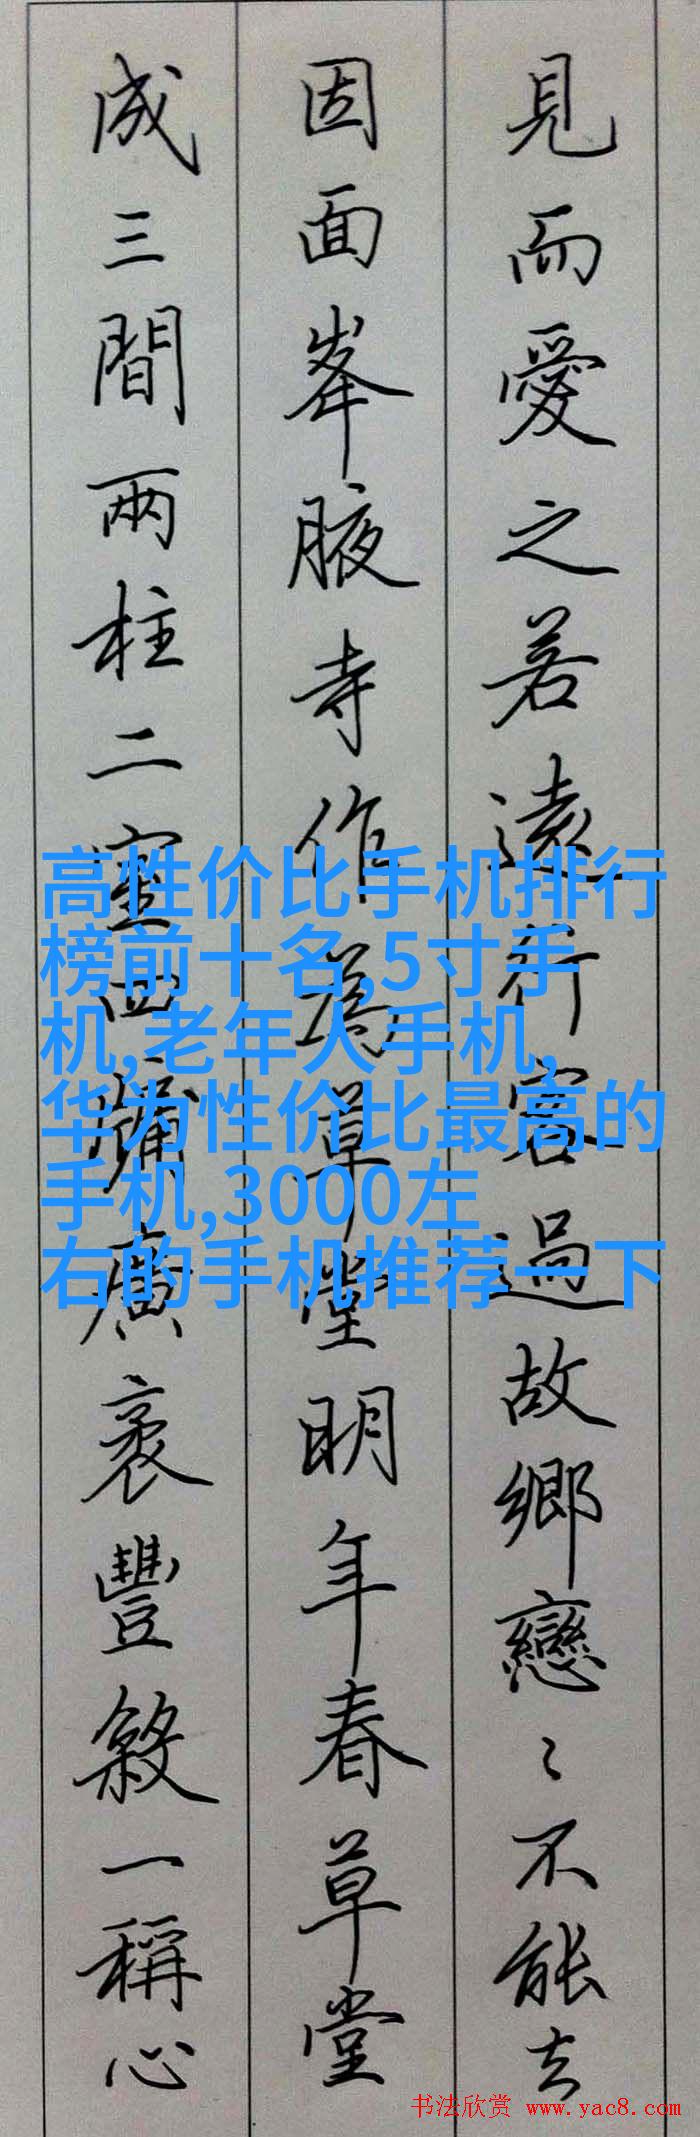 見而愛之若遠行客過故鄉戀〻不能去
因面峯腋寺作為草堂明年春草堂
成三間兩柱二室四牖廣袤豐殺一稱心
高性价比手机排行
榜前十名,5寸手
机,老年人手机,
华为性价比最高的
手机,3000左
右的手机推荐一下
书法欣赏 www.yac8.com